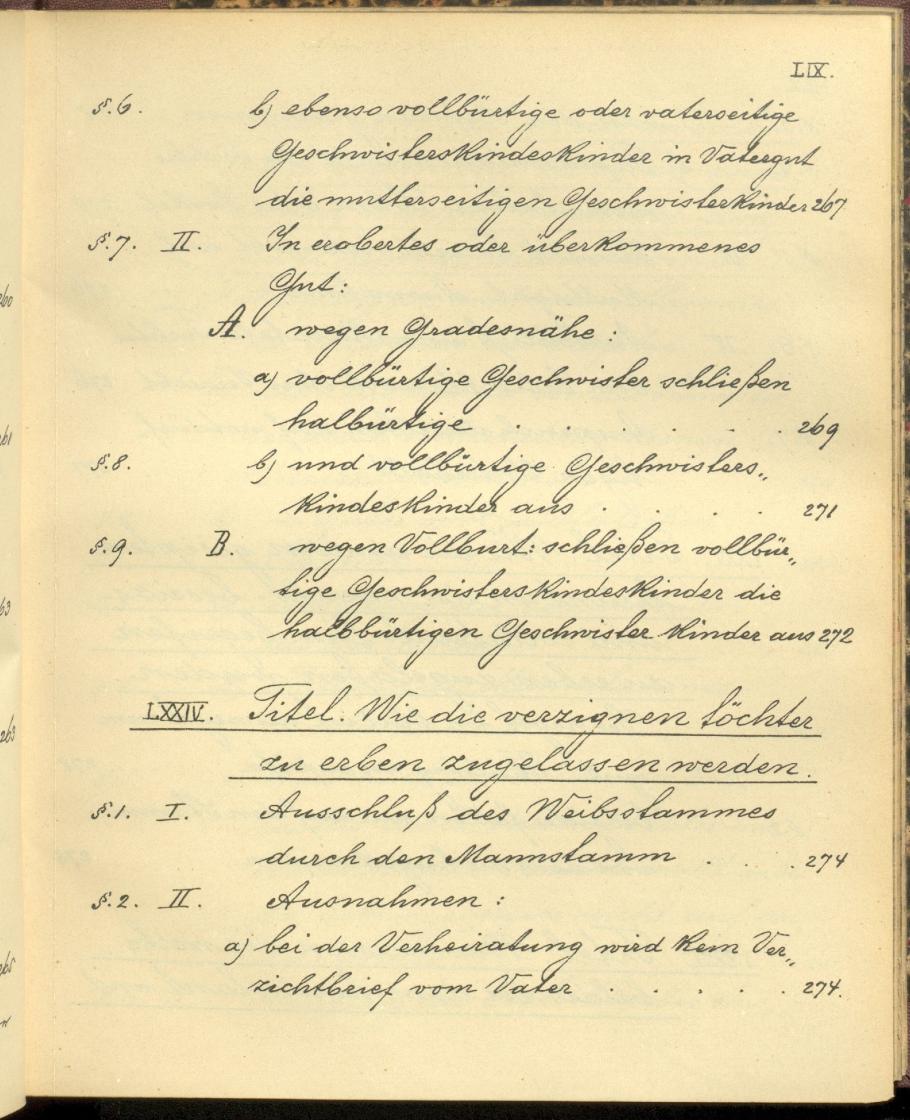 LIX.
§.6. b) ebenso vollbürtige oder vaterseitige
Geschwisterskindeskinder in Vatergut
die mutterseitigen Geschwisterkinder 267
§.7. II. In erobertes oder überkommenes
Gut:
A. wegen Gradesnähe:
a) vollbürtige Geschwister schließen
halbürtige . . . . . . 269
§.8. b) und vollbürtige Geschwisters„
kindeskinder aus . . . . 271
§.9. B. wegen Vollburt: schließen vollbür„
tige Geschwisterskindeskinder die
halbbürtigen Geschwister kinder aus 272
LXXIV. Titel. Wie die verzignen töchter
zu erben zugelassen werden.
§.1. I. Ausschluß des Weibsstammes
durch den Mannstamm . . . 274
§.2. II. Ausnahmen:
a) bei der Verheiratung wird kein Ver„
zichtbrief vom Vater . . . . . 274.